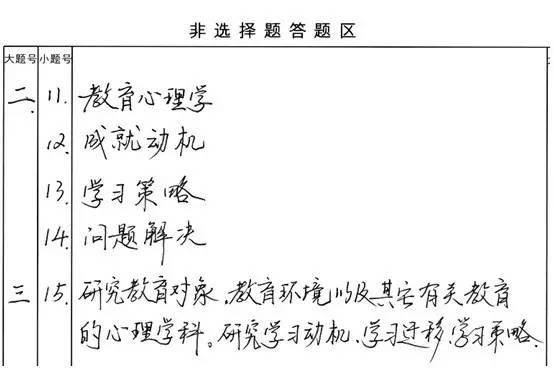 非选择题答题区
大题号 小题号
二、 11. 教育心理学
12. 成就动机
13. 学习策略
14. 问题解决
三 15. 研究教育对象、教育环境以及其它有关教育
的心理学科。研究学习动机、学习迁移、学习策略.